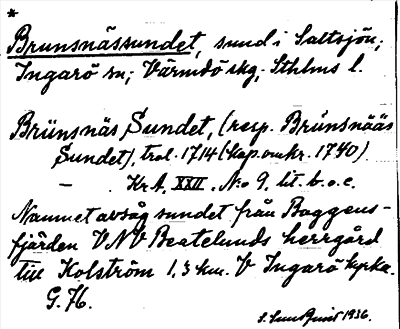 *
Brunsnässundet, sund i Saltsjön;
Ingarö sn; Värmdö skg; Sthlms l.
Brünsnäs Sundet, (resp. Brünsnääs
Sundet), trol. 1714 (kop. omkr. 1740)
— KrA, XXII. No 9, lit. b. o. c.
Namnet avsåg sundet från Baggens-
fjärden VNV Beatelunds herrgård
till Kolström 1,3 km. V Ingarö kyrka.
G. 76.
1936.